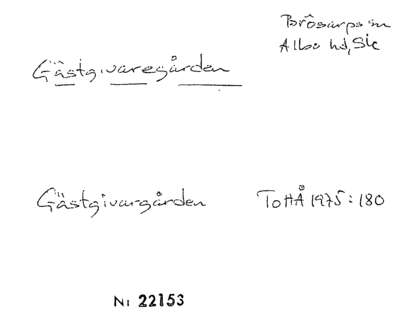 Brösarps sn
Albo hd, Sk
Gästgivaregården
Gästgivargården ToHÅ 1975:180
Ni 22153